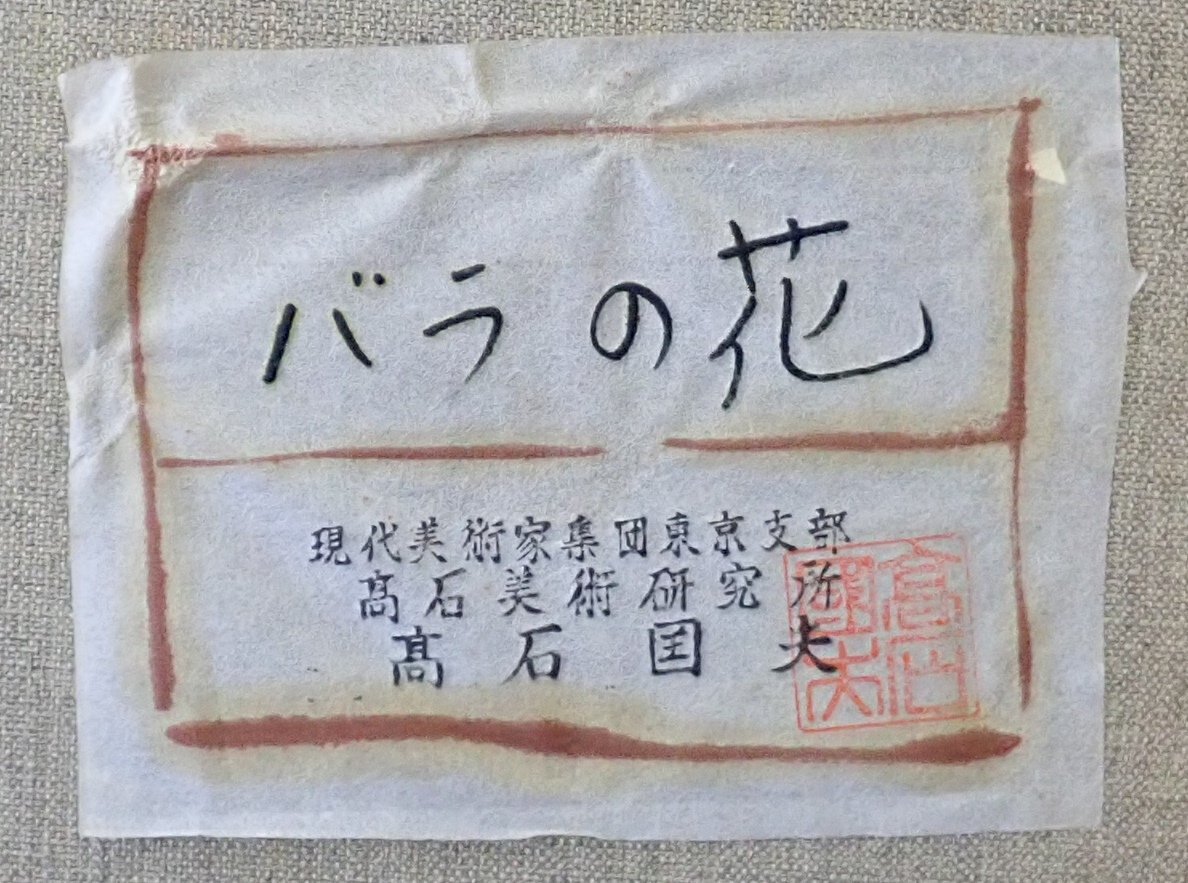 バラの花
現代美術家集団東京支部
髙石美術研究所
髙石囯夫
高石
國夫